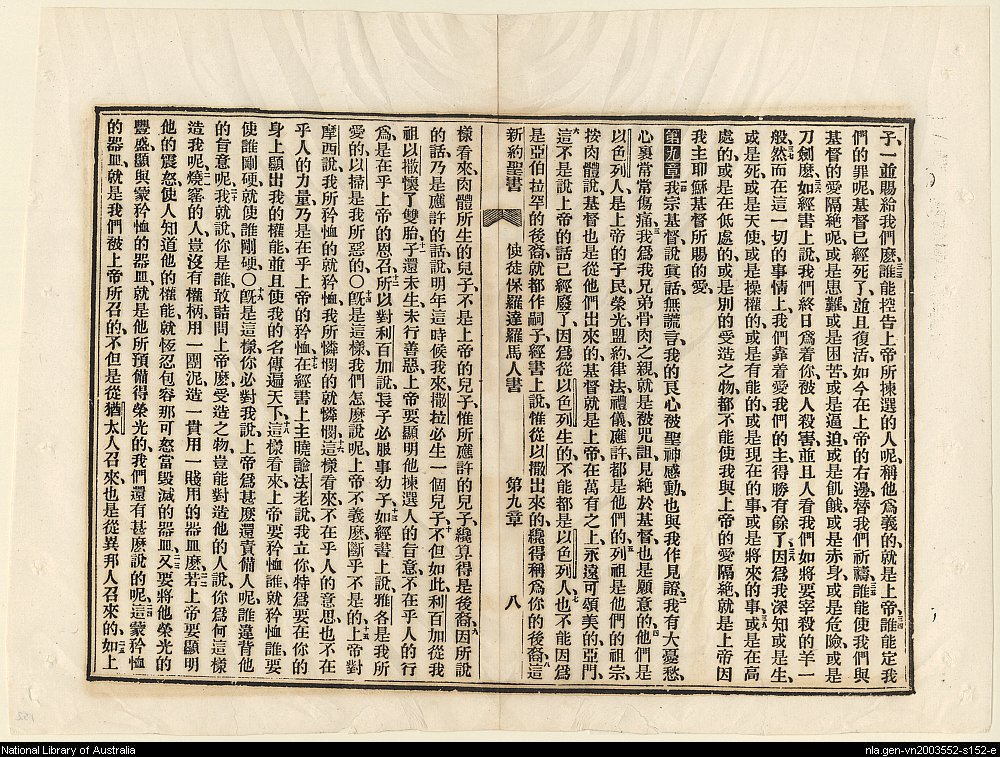 子、一並賜給我們麽、誰能控告上帝所揀選的人呢、稱他爲義的、就是上帝、誰能定我
們的罪呢、基督已經死了、並且復活、如今在上帝的右邊、替我們祈禱、誰能使我們與
基督的愛隔絕呢、或是患難、或是困苦、或是逼迫、或是飢餓、或是赤身、或是危險、或是
刀劍麽、如經書上說、我們終日爲着你、被人殺害、並且人看我們如將要宰殺的羊一
般、然而在這一切的事情上、我們靠着愛我們的主得勝有餘了、因爲我深知或是生、
或是死、或是天使、或是操權的、或是有能的、或是現在的事、或是將來的事、或是在高
處的、或是在低處的、或是別的受造之物、都不能使我與上帝的愛隔絕、就是上帝因
我主耶穌基督所賜的愛、
第九章 我宗基督說眞話、無謊言、我的良心被聖神感動、也與我作見證、我有大憂愁、
心裏常常傷痛、我爲我兄弟骨肉之親、就是被咒詛、見絕於基督、也是願意的、他們是
以色列人、是上帝的子民、榮光、盟約、律法、禮儀、應許、都是他們的、列祖是他們的祖宗、
按肉體說、基督也是從他們出來的、基督就是上帝、在萬有之上、永遠可頌美的、亞門、
這不是說上帝的話已經廢了、因爲從以色列生的、不能都是以色列人、也不能因爲
是亞伯拉罕的後裔、就都作嗣子、經書上說、惟從以撒出來的、纔得稱爲你的後裔、這
新約聖書 使徒保羅達羅馬人書 第九章 八
樣看來、肉體所生的兒子、不是上帝的兒子、惟所應許的兒子、纔算得是後裔、因所說
的話、乃是應許的話、說、明年這時候我來、撒拉必生一個兒子、不但如此、利百加從我
祖以撒懷了雙胎子、還未生未行善惡、上帝要顯明他揀選人的旨意、不在乎人的行
爲、是在乎上帝的恩召、所以對利百加說、長子必服事幼子、如經書上說、雅各是我所
愛的、以掃是我所惡的、〇旣是這樣、我們怎麽說呢、上帝不義麽、斷乎不是的、上帝對
摩西說、我所矜恤的就矜恤、我所憐憫的就憐憫、這樣看來、不在乎人的意思、也不在
乎人的力量、乃是在乎上帝的矜恤、在經書上主曉諭法老說、我立你、特爲要在你的
身上顯出我的權能、並且使我的名傳遍天下、這樣看來、上帝要矜恤誰就矜恤、誰要
使誰剛硬就使誰剛硬、〇旣是這樣、你必對我說、上帝爲甚麽還責備人呢、誰違背他
的旨意呢、我就說、你是誰、敢詰問上帝麽、受造之物、豈能對造他的人說、你爲何這樣
造我呢、燒窰的人、豈沒有權柄用一團泥造一貴用一賤用的器皿麽、若上帝要顯明
他的震怒、使人知道他的權能、就恆忍包容那可怒當毀滅的器皿、又要將他榮光的
豐盛、顯與蒙矜恤的器皿、就是他所預備得榮光的、我們還有甚麽說的呢、這蒙矜恤
的器皿、就是我們被上帝所召的、不但是從猶太人召來、也是從異邦人召來的、如上
National Library of Australia
nla.gen-vn2003552-s152-e